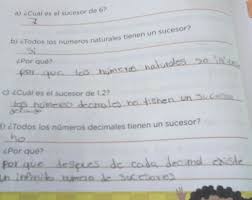 a) ¿Cuál es el sucesor de 6?
7
b) ¿Todos los números naturales tienen un sucesor?
Sí
¿Por qué?
por que los números naturales so
c) ¿Cuál es el sucesor de 1,2?
los números decimales no tienen un sucesor
d) ¿Todos los números decimales tienen un sucesor?
No
¿Por qué?
Por que despues de cada decimal existe
un infinito numero de sucesores